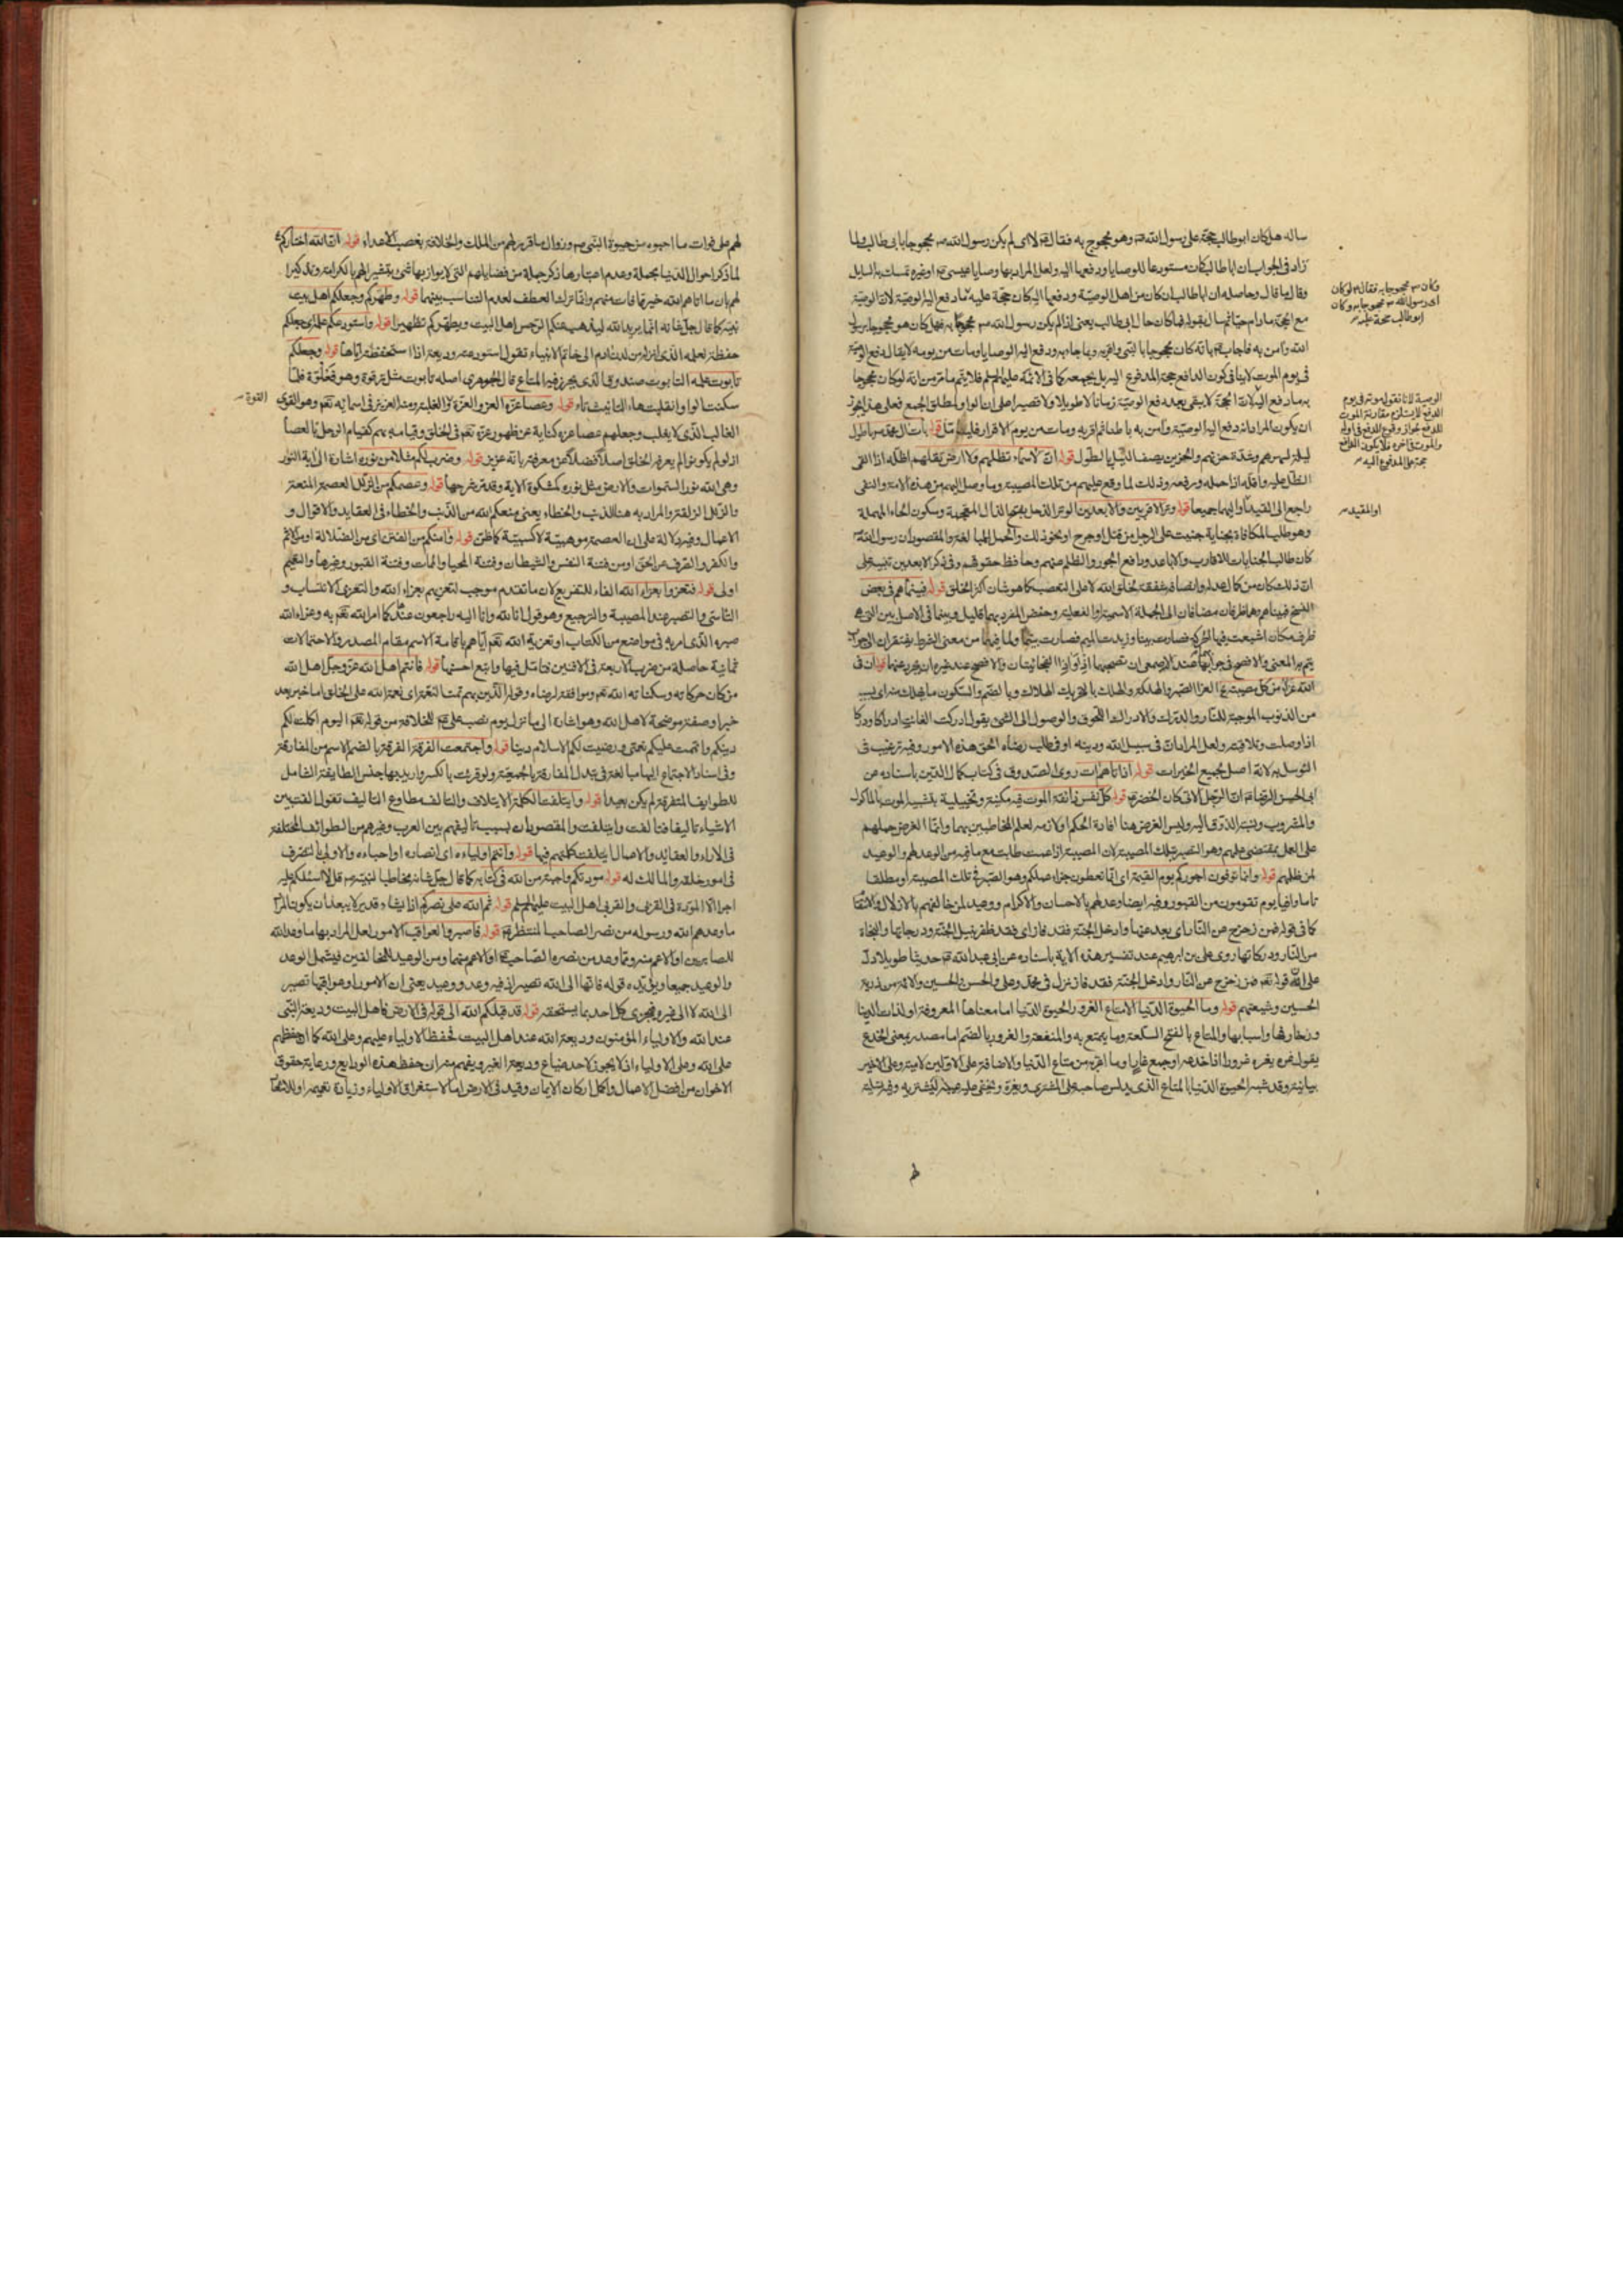 ساله هل كان ابو طالب حجة على رسول الله ص وهو محجوج به فقال ع لا اى لم يكن رسول الله ص محجوجا بابى طالب ولما
زاد فى الجواب ان ابا طالب كان مستودعا للوصايا ودفعها اليه ولعل المراد بها وصايا عيسى ع او غيره تمسك به السايل
وقال ما قال وحاصله ان ابا طالب ان كان من اهل الوصية ودفعها اليه كان حجة عليه ما دفع اليه الوصية لان الوصية
الله وآمن به فاجاب ع بانه كان محجوجا بالنبى واقر به وبما جاء به ودفع اليه الوصايا ومات من يومه لا يقال دفع الوصية
فى يوم الموت لا ينافى كون الدافع حجة المدفوع اليه بل يجمعه كما فى الائمة عليهم السلم فلا يتم ما مر من انه لو كان محجوجا
به ما دفع اليه لان الحجة لا يبقى بعد دفع الوصية زمانا لا طويلا ولا قصيرا
ان يكون المراد انه دفع اليه الوصية وآمن به باطنا ثم اقر به ومات من يوم الاقرار فليتامل قوله بات آل محمد ص باطول
ليلة لهمهم وشدة حزنهم والحزين يصف الليل بالطول قوله ان لا سماء تظلهم ولا ارض تقلهم اظله اذا القى
الظل عليه واقله اذا حمله ورفعه وذلك لما وقع عليهم من تلك المصيبة وما وصل اليهم من هذه الامة والنفى
راجع الى القيد او اليهما جميعا قوله وتر الاقربين والابعدين الوتر الذحل بفتح الذال المعجمة وسكون الحاء المهملة
وهو طلب المكافاة بجناية جنيت على الرجل من قتل او جرح او نحو ذلك والحمل للمبالغة والمقصود ان رسول الله ص
كان طالب الجنايات للاقارب والاباعد ودافع الجور والظلم عنهم وحافظ حقوقهم وفى ذكر الابعدين تنبيه على
ان ذلك كان من كمال عدله وانصافه وشفقته لخلق الله لا على التعصب كما هو شان اكثر الخلق قوله فبينما هم فى بعض
النسخ فبينا هم وهما ظرفان مضافان الى الجملة الاسمية او الفعلية وخفض المفرد بهما قليل وبينما فى الاصل بين التى هى
ظرف مكان اشبعت فيها الحركة فصارت بينا وزيدت الميم فصارت بينما ولما فيهما من معنى الشرط يفتقران الى جواب
من الذنوب الموجبة للنار والدرك والادراك اللحوق والوصول الى الشىء يقول ادركت الغائب ادراكا ودركا
اذا وصلت وتلاقيته ولعل المراد ان فى سبيل الله ودينه او فى طلب رضاه الحق هذه الامور وفيه ترغيب فى
التوسل به لانه اصل لجميع الخيرات قوله اذ اتاهم آت روى الصدوق فى كتاب كمال الدين باسناده عن
ابى الحسن الرضا ع ان الرجل الاتى كان الخضر ع قوله كل نفس ذائقة الموت فيه مكنية وتخييلية بتشبيه الموت بالماكول
والمشروب ونسبة الذوق اليه وليس الغرض هنا افادة الحكم او لازمه لعلم المخاطبين بهما وانما الغرض حملهم
على العمل بمقتضى علمهم وهو الصبر بتلك المصيبة لان المصيبة اذا عمت طابت مع ما فيه من الوعد لهم والوعيد
لمن ظلمهم قوله وانما توفون اجوركم يوم القيمة اى انما تعطون جزاء عملكم وهو الصبر فى تلك المصيبة او مطلقا
تاما وافيا يوم تقومون من القبور وفيه ايضا وعد لهم بالاحسان والاكرام ووعيد لمن خالفهم بالاذلال والانتقام
كما فى قوله فمن زحزح عن النار اى بعد عنها وادخل الجنة فقد فاز اى فقد ظفر بنيل الجنة ودرجاتها والنجاة
من النار ودركاتها روى على بن ابرهيم عند تفسير هذه الآية باسناده عن ابى عبد الله ع حديثا طويلا دل
على ان قوله تعم فمن زحزح عن النار وادخل الجنة فقد فاز نزل فى محمد وعلى والحسن والحسين والائمة من ذرية
الحسين وشيعتهم قوله وما الحيوة الدنيا الا متاع الغرور الحيوة الدنيا اما معناها المعروفة او لذات الدنيا
وزخارفها واسبابها والمتاع بالفتح السلعة وما يتمتع به والمنفعة والغرور بالضم اما مصدر بمعنى الخدع
يقول غره يغره غرورا اذا خدعه او جمع غار او ما اغتر به من متاع الدنيا والاضافة على الاولين لامية وعلى الاخير
بيانية وقد شبه الحيوة الدنيا بالمتاع الذى يدلس صاحبه على المشترى ويغره ويخفى عليه عيبه ليشتريه وفيه تسلية
لهم
وكان ص محجوجا به فقال ع لو كان
اى رسول الله ص محجوجا به وكان
ابو طالب حجة عليه
الوصية لانا نقول موته فى يوم
الدفع لا يستلزم مقارنة الموت
للدفع لجواز وقوع الدفع فى اوله
والموت فى اخره فلا يكون الدافع
حجة على المدفوع اليه
او المقيد
لهم على فوات ما احبوه من حيوة النبى ص وزوال ما قرر لهم من الملك والخلافة بغصب الاعداء قوله ان الله اختاركم
لما ذكر احوال الدنيا بجملة وعدم اعتبارها ذكر جملة من فضايلهم التى لا يوازيها شىء تبشيرا لهم بالكرامة وتذكيرا
لهم بان ما اتاهم الله خير مما فات منهم وانما ترك العطف لعدم التناسب بينهما قوله وطهركم وجعلكم اهل بيت
نبيه كما قال جل شانه انما يريد الله ليذهب عنكم الرجس اهل البيت ويطهركم تطهيرا قوله واستودعكم علمه اى جعلكم
حفظة لعلمه الذى انزله من لدن ادم الى خاتم الانبياء تقول استودعته وديعة اذا استحفظته اياها قوله وجعلكم
تابوت علمه التابوت صندوق الذى يحرز فيه المتاع قال الجوهرى اصله تابوة مثل ترقوة وهو فعلوة فلما
سكنت الواو انقلبت هاء التانيث تاء قوله وعصا عزه العز والعزة القوة والغلبة ومنه العزيز فى اسمائه تعم وهو القوى
القوة
الغالب الذى لا يغلب وجعلهم عصا عزه كناية عن ظهور عزه تعم فى الخلق وقيامه بهم كقيام الرجل بالعصا
اذ لو لم يكونوا لم يعرفه الخلق اصلا فضلا عن معرفته بانه عزيز قوله وضرب لكم مثلا من نوره اشارة الى آية النور
وهى الله نور السموات والارض مثل نوره كمشكوة الاية وقد مر شرحها قوله وعصمكم من الزلل العصمة المنعة
والزلل الزلقة والمراد به هنا الذنب والخطاء يعنى منعكم الله من الذنب والخطاء فى العقايد والاقوال و
الاعمال وفيه دلالة على ان العصمة موهبية لا كسبية كما ظن قوله وآمنكم من الفتن اى من الضلالة او من الاثم
والكفر والصرف عن الحق او من فتنة النفس والشيطان وفتنة المحيا والممات وفتنة القبور وغيرها والتعميم
اولى قوله فتعزوا بعزاء الله الفاء للتفريع لان ما تقدم موجب لتعزيهم بعزاء الله والتعزى الانتساب و
التاسى والتصبر عند المصيبة والترجيع وهو قول انا لله وانا اليه راجعون عندها كما امر الله تعم به وعزاء الله
صبره الذى امر به فى مواضع من الكتاب او تعزية الله تعم اياهم باقامة الاسم مقام المصدر والاحتمالات
ثمانية حاصلة من ضرب الاربعة فى الاثنين فتامل فيها واتبع احسنها قوله فانتم اهل الله عز وجل اهل الله
من كان حركاته وسكناته الله تعم وموافقة لرضاه وقوله الذين بهم تمت النعمة اى نعمة الله على الخلق اما خبر بعد
خبر او صفة موضحة لاهل الله وهو اشارة الى ما نزل يوم نصب على ع للخلافة من قوله تعم اليوم اكملت لكم
دينكم واتممت عليكم نعمتى ورضيت لكم الاسلام دينا قوله واجتمعت الفرقة الفرقة بالضم الاسم من المفارقة
وفى اسناد الاجتماع اليها مبالغة فى تبدل المفارقة بالجمعية ولو قرئت بالكسر واريد بها جنس الطايفة الشامل
للطوايف المتفرقة لم يكن بعيدا قوله وايتلفت الكلمة الايتلاف والتالف مطاوع التاليف تقول الفت بين
الاشياء تاليفا فتالفت وايتلفت والمقصود ان بسببه تاليفهم بين العرب وغيرهم من الطوائف المختلفة
فى الاراء والعقائد والاعمال ايتلفت كلمتهم فيها قوله وانتم اولياءه اى انصاره او احباءه والاولى بالتصرف
فى امور خلقه والمالك له قوله مودتكم واجبة من الله فى كتابه كما قال جل شانه مخاطبا لنبيه ص قل لا اسئلكم عليه
اجرا الا المودة فى القربى والقربى اهل البيت عليهم السلم قوله ثم الله على نصركم اذا يشاء قدير لا يبعد ان يكون المراد
ما وعدهم الله ورسوله من نصر الصاحب المنتظر ع قوله فاصبروا لعواقب الامور لعل المراد بها ما وعد الله
للصابرين او الاعم منه ومما وعد من نصرة الصاحب ع او الاعم منهما ومن الوعيد للمخالفين فيشمل الوعد
والوعيد جميعا ويؤيده قوله فانها الى الله تصير اذ فيه وعد ووعيد يعنى ان الامور او عواقبها تصير
الى الله لا الى غيره فيجزى كل احد بما يستحقه قوله قد قبلكم الله الى قوله فى الارض فاهل البيت وديعة النبى
عند الله والاولياء المؤمنون وديعة الله عند اهل البيت فحفظ الاولياء عليهم وعلى الله كما ان حفظهم
على الله وعلى الاولياء اذ لا يجوز لاحد ضياع وديعة الغير ويفهم منه ان حفظ هذه الودايع ورعاية حقوق
الاخوان من افضل الاعمال واكمل اركان الايمان وقيد فى الارض اما لاستغراق الاولياء وزيادة تعميمه